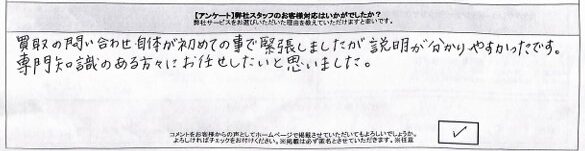 【アンケート】弊社スタッフのお客様対応はいかがでしたか？
弊社サービスをお選びいただいた理由を教えていただけますと幸いです。
買取の問い合わせ自体が初めての事で緊張しましたが説明が分かりやすかったです。
専門知識のある方々にお任せしたいと思いました。
コメントをお客様からの声としてホームページで掲載させていただいてもよろしいでしょうか。
よろしければチェックをお付けください。※掲載は必ず匿名とさせていただきます。※任意
✓